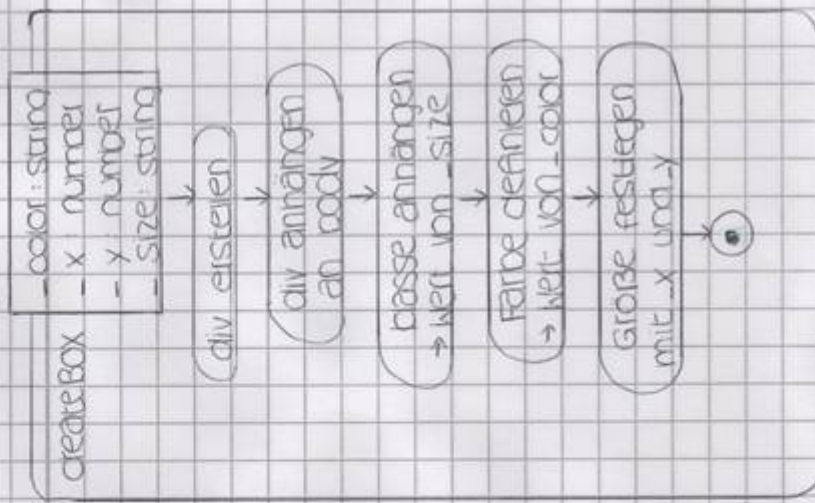 createBox
_color: string
_x: number
_y: number
_size: string
div erstellen
div anhängen
an body
anhängen
→ Wert von _size
Farbe definieren
→ Wert von _color
Größe festlegen
mit _x und _y